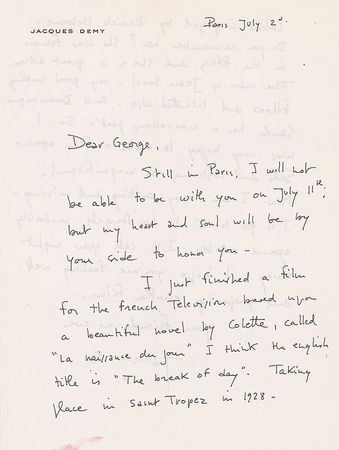 JACQUES DEMY
Paris July 2d.
Dear George,
Still in Paris, I will not
be able to be with you on July 11th;
but my heart and soul will be by
your side to honor you -
I just finished a film
for the french Television based upon
a beautiful novel by Colette, called
"La naissance du jour" I think the english
title is "The break of day". Taking
place in Saint Tropez in 1928 -